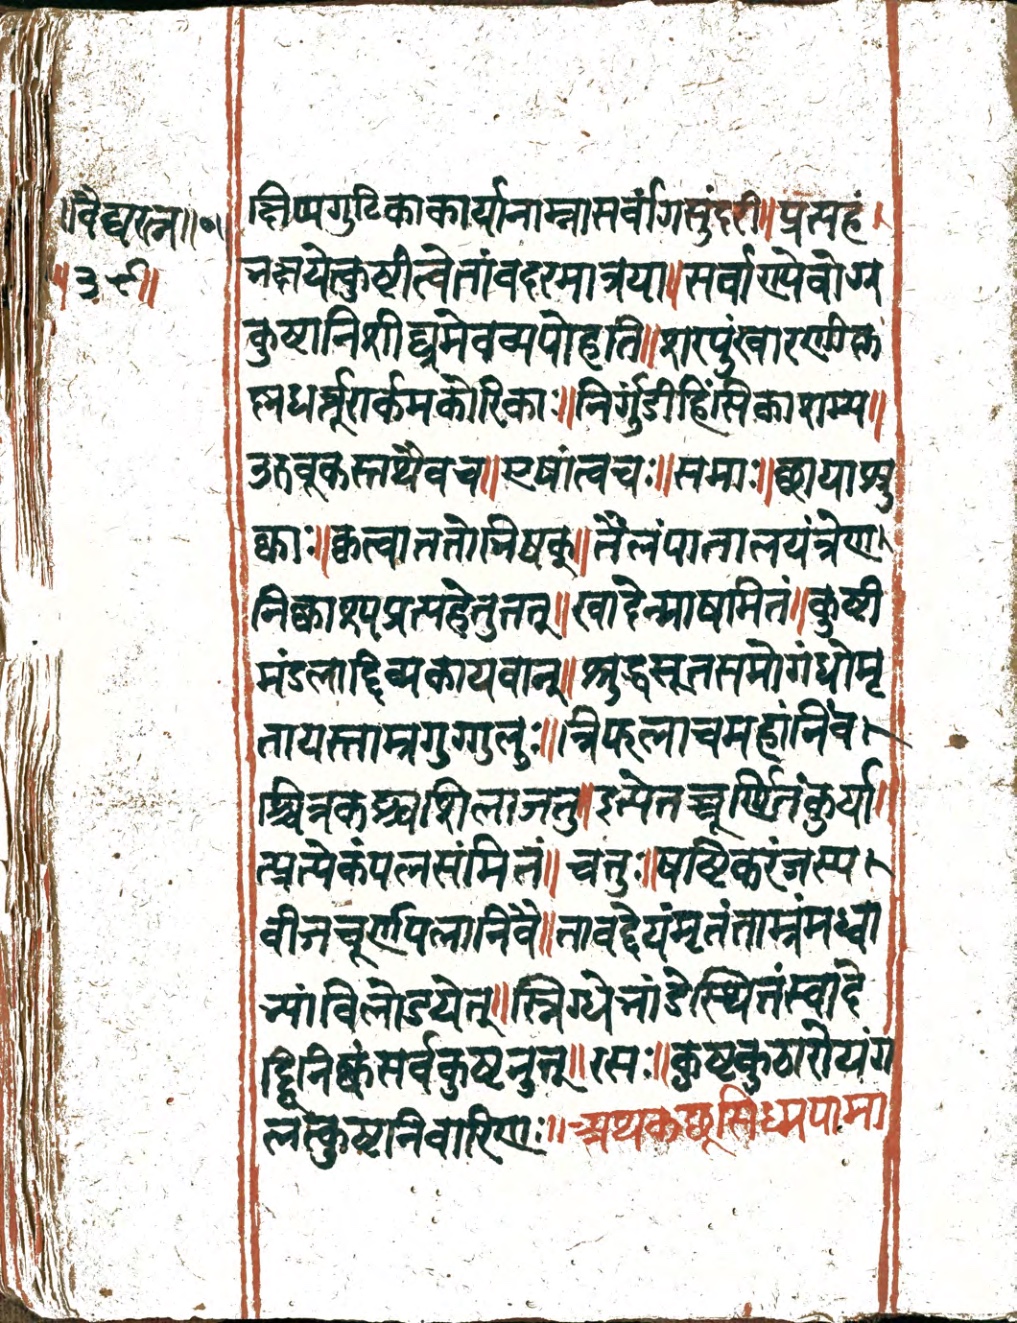 ।वैद्यरत्न॥०।
॥३९॥
क्षिप्यगुटिकाकार्यानाम्नासर्वांगसुंदरी॥प्रत्यहं।
भक्षयेत्कुष्टीत्वेतांवदरमात्रया॥सर्वाण्येवोग्र
कुष्टानिशीघ्रमेवव्यपोहति॥शरपुंखारणी
धर्त्तूरार्कमकोरिकाः॥निर्गुंडीहिंसिकाशम्य॥
उरुवूकस्तथैवच॥एषांत्वचः॥समाः॥छायाशु
ष्काः॥कृत्वाततोभिषक्॥तैलंपातालयंत्रेण।
निष्काश्यप्रत्यहेतुतत्॥खादेन्माषमितं॥कुष्टी
मंडलाद्दिव्यकायवान्॥शुद्धसूतसमोगंधोमृ
तायस्ताम्रगुग्गुलुः॥त्रिफलाचमहांनिंव।
श्चित्रकश्चशिलाजतु॥इत्येतच्चूर्णितंकुर्या।
त्प्रत्येकंपलसंमितं॥चतुः॥षष्टिकरंजस्य।
वीजचूर्णपलानिवै॥तावद्देयंमृतंताम्रंमध्वा
ज्यांविलोडयेत्॥स्निग्धेभांडेस्थितंखादे
द्द्विनिष्कंसर्वकुष्टनुत्॥रसः॥कुष्टकुठारोयंग
लत्कुष्टनिवारिणः॥अथकछूसिध्मपामा